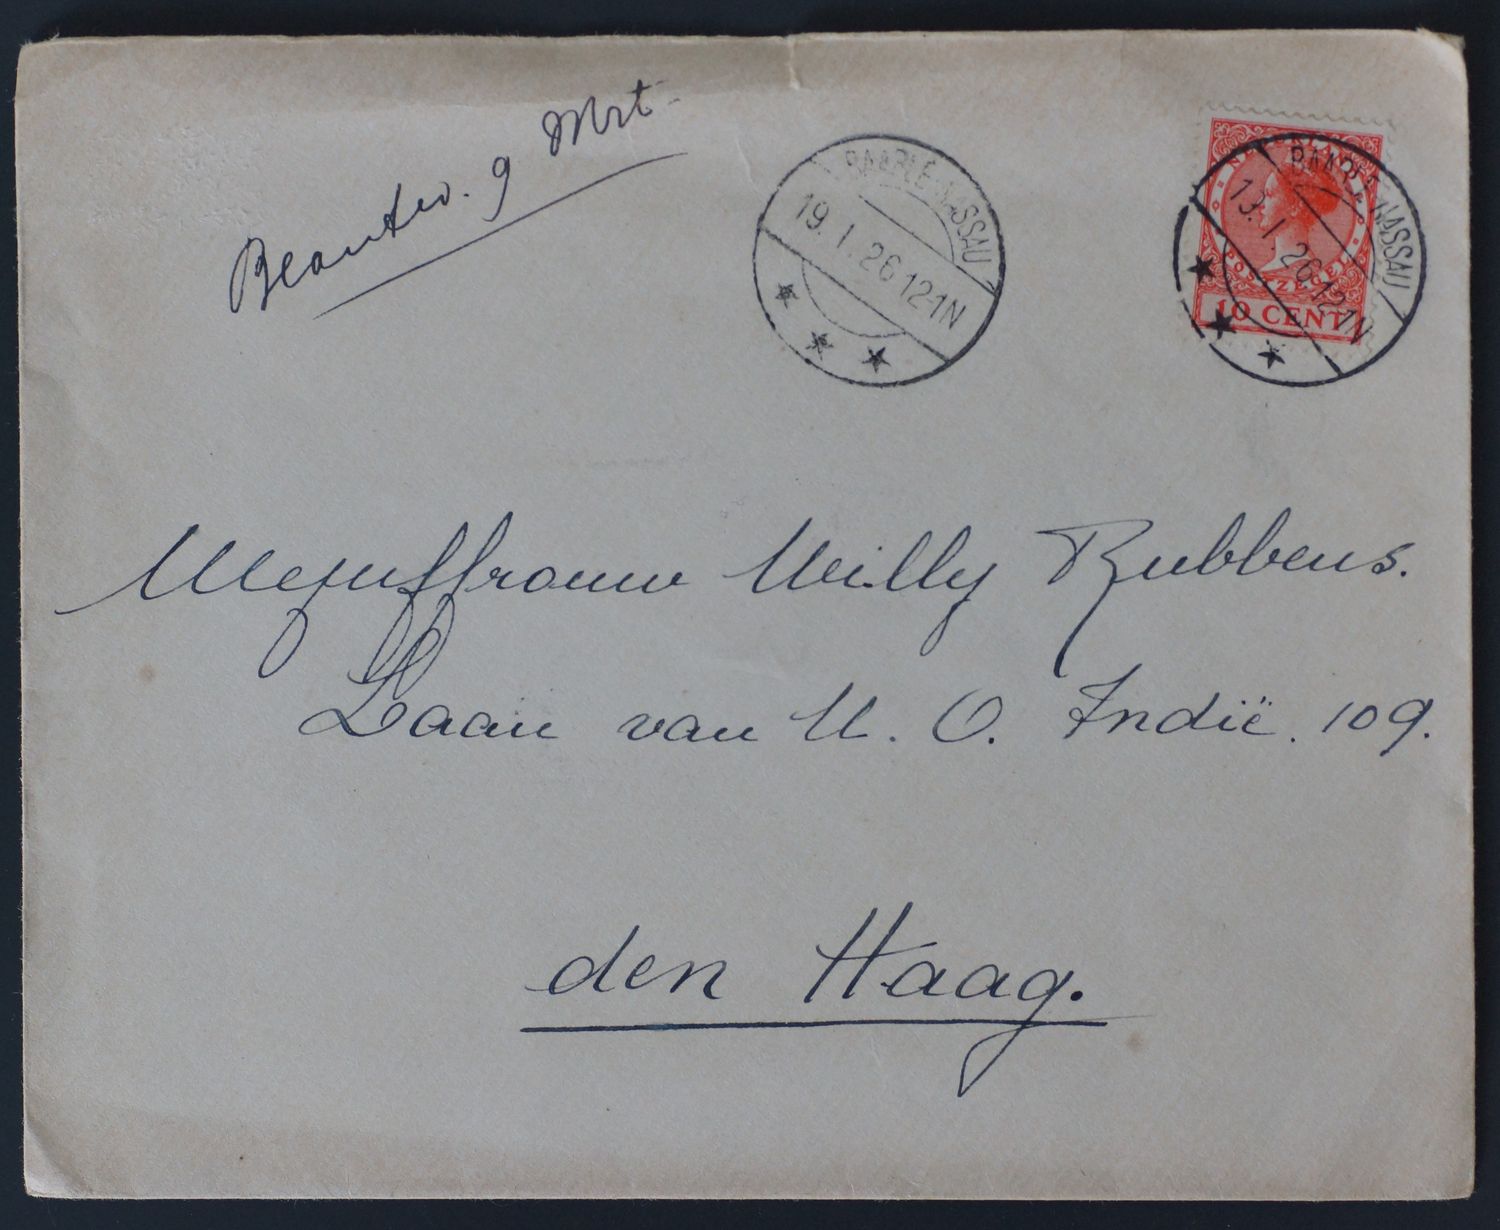 Beantw. 9 Mrt
BAARLE-NASSAU
19.1.26 12-1N
NEDERLAND
POSTZEGEL
10 CENT
BAARLE-NASSAU
13.1.26 12-1N
Mejuffrouw Willy Rubbens.
Laan van N. O. Indië. 109.
den Haag.